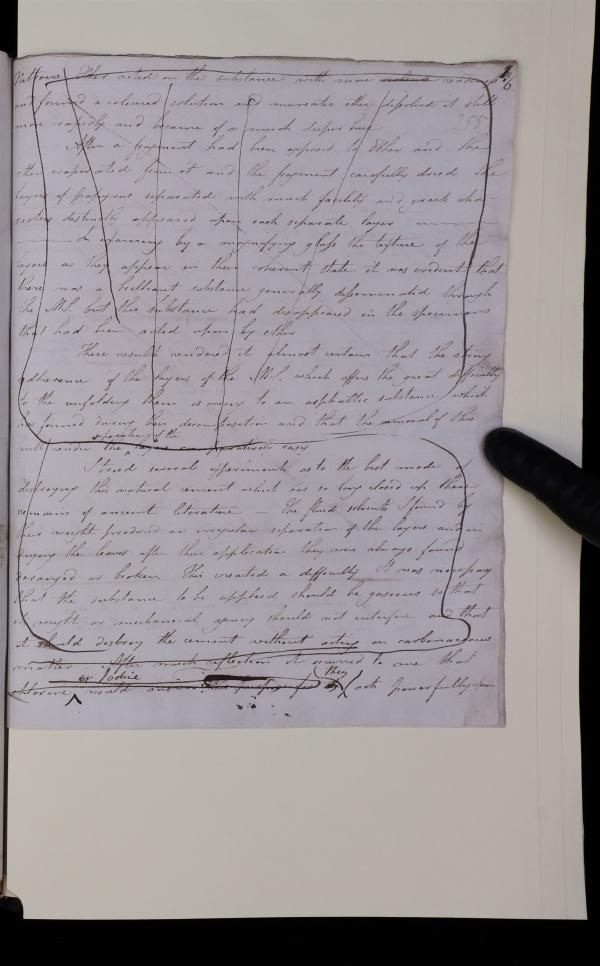 Ether acted on the substance with more violence readiness
and formed a coloured solution and muriatic ether dissolved it still
more rapidly and became of a much deeper hue
255
After a fragment had been exposed to Ether and the
ether evaporated from it and the fragment carefully dried the
layers of papyrus separated with much facility and greek cha-
racters distinctly appeared upon each separate layer
In examining by a magnifying glass the texture of the
layers as they appear in their coherent state it was evident that
there was a brilliant substance generally disseminated through
the MS. but this substance had disappeared in the specimens
that had been acted upon by ether
These results rendered it almost certain that the strong
adherence of the layers of the MS. which offers the great difficulty
to the unfolding them is owing to an asphaltic substance which
has formed during their decomposition and that the removal of this
separating of the
will render the layers comparatively easy
I tried several experiments as to the best mode of
destroying this natural cement which has so long closed up these
remains of ancient literature — The fluid solvents I found by
their weight produced an irregular separation of the layers and in
drying the leaves after their application they were always found
deranged or broken This created a difficulty It was necessary
that the substance to be applied should be gaseous so that
its weight or mechanical agency should not interfere and that
it should destroy the cement without acting on carbonaceous
matter. After much reflection it occurred to me that
or Iodine they
chlorine would answer this purpose for act powerfully upon